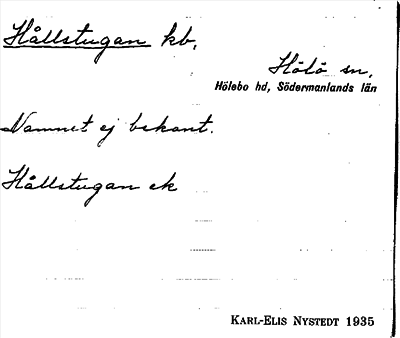 Hållstugan kb.
Hölö sn.
Hölebo hd, Södermanlands län
Namnet ej bekant.
Hållstugan ek
KARL-ELIS NYSTEDT 1935